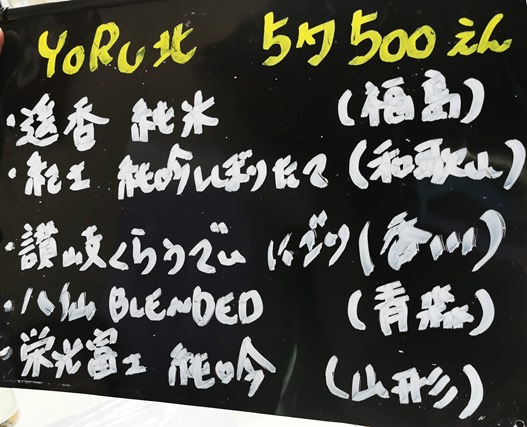 YoRU北 5勺 500えん
・遥香 純米 (福島)
・紀土 純吟しぼりたて (和歌山)
・讃岐くらうでぃ にごり (香川)
・八仙 BLENDED (青森)
・栄光冨士 純吟 (山形)